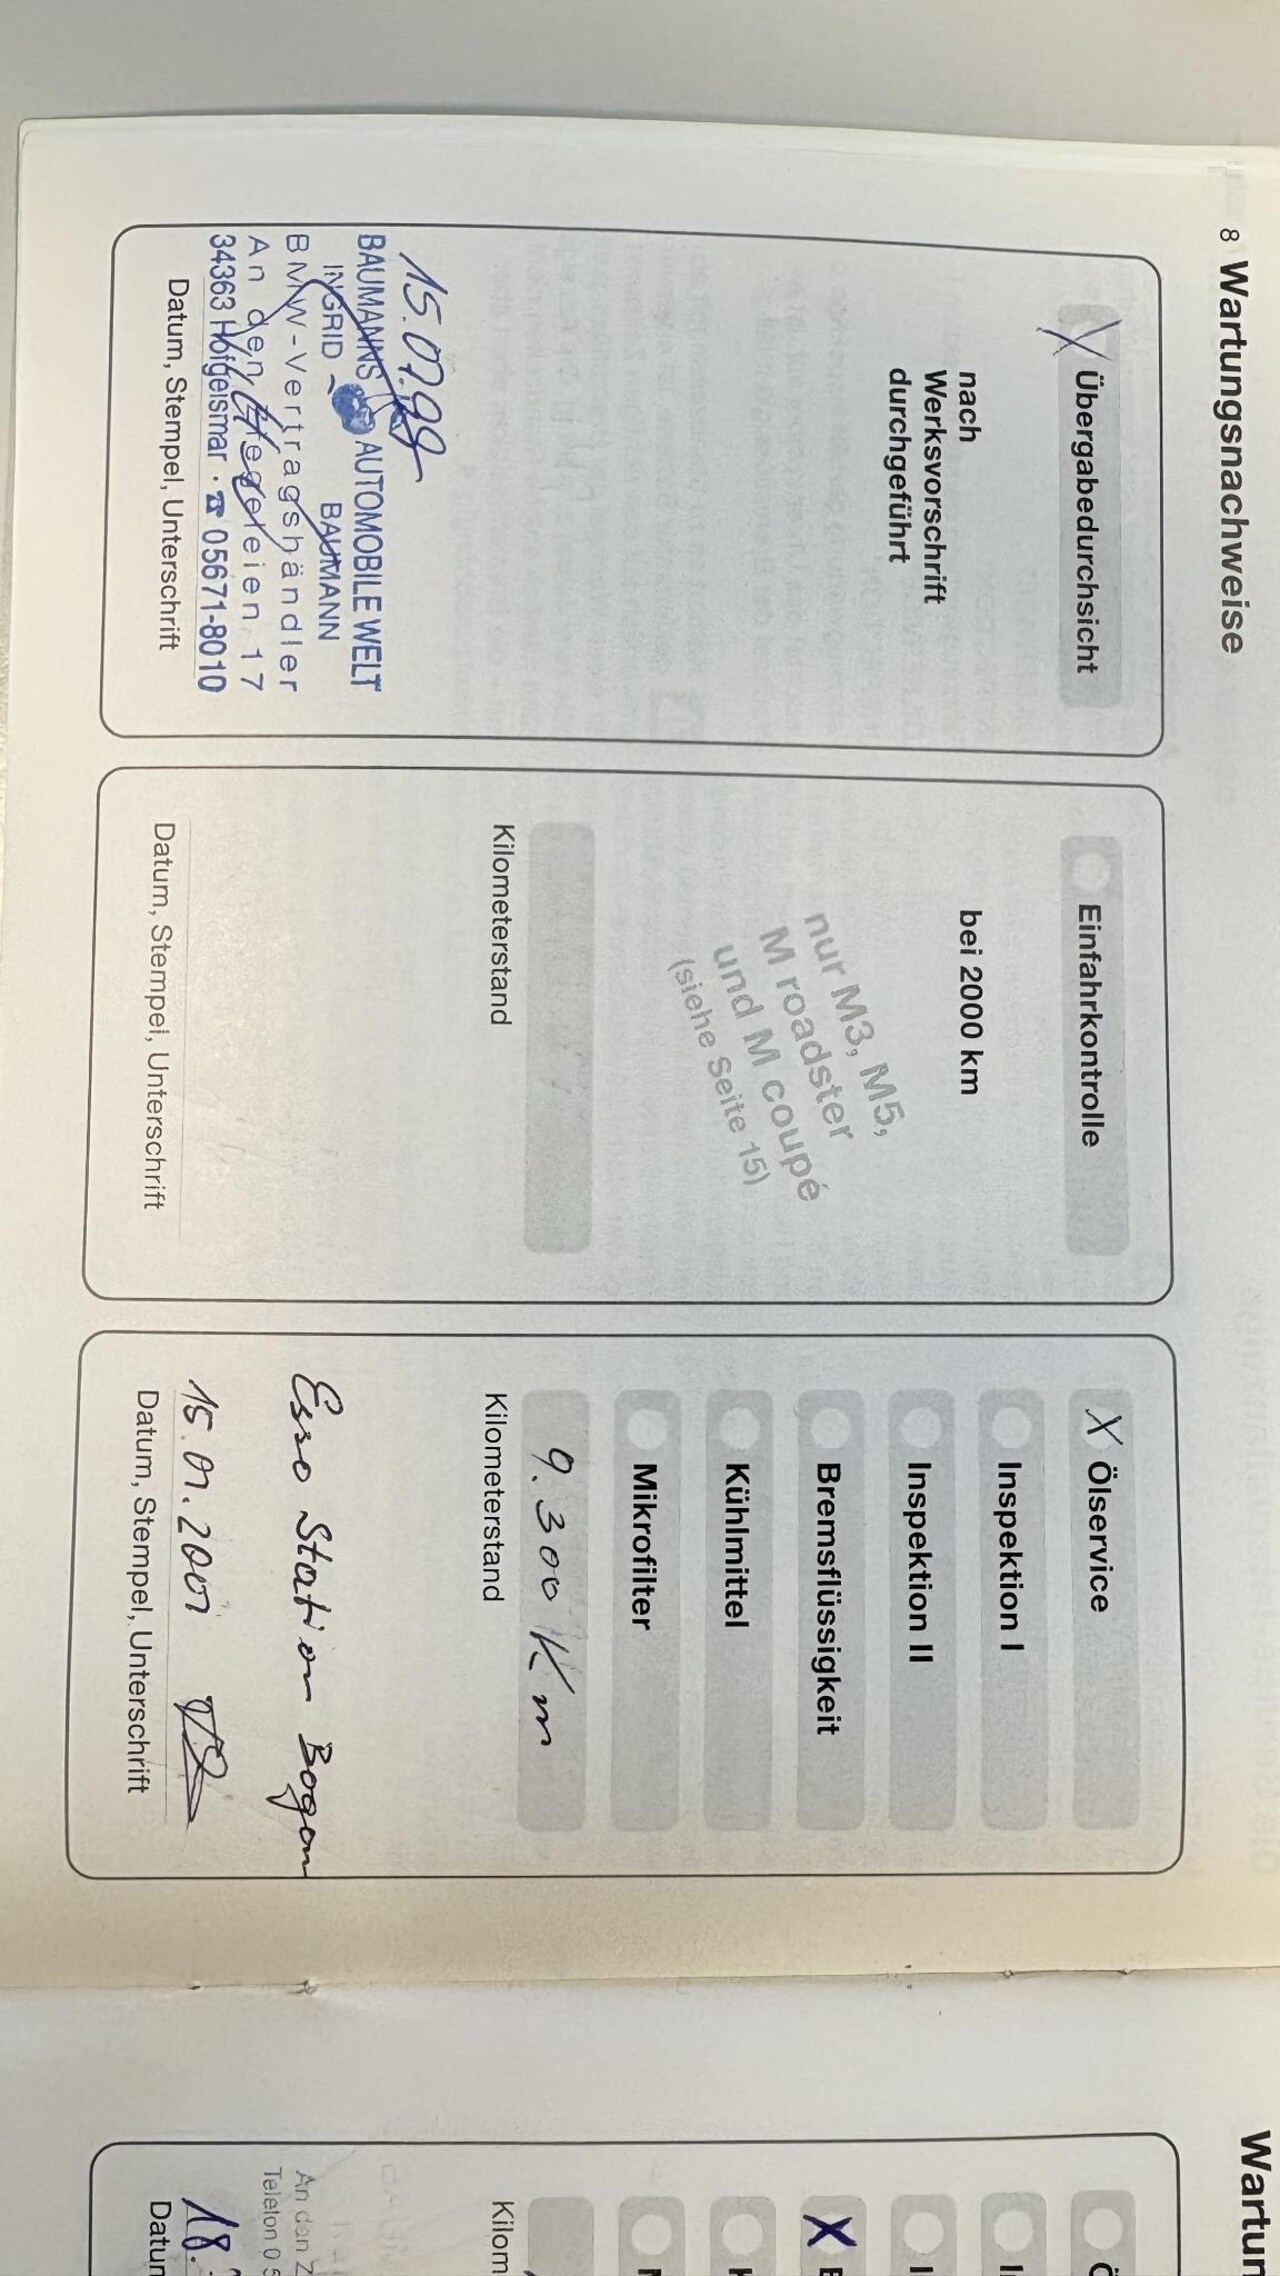 8 Wartungsnachweise
X Übergabedurchsicht
nach
Werksvorschrift
durchgeführt
15.07.99
BAUMANNS AUTOMOBILE WELT
INGRID BAUMANN
BMW-Vertragshändler
An den Ziegeleien 17
34363 Hofgeismar · ☎ 05671-8010
Datum, Stempel, Unterschrift
Einfahrkontrolle
bei 2000 km
nur M3, M5,
M roadster
und M coupé
(siehe Seite 15)
Kilometerstand
Datum, Stempel, Unterschrift
X Ölservice
Inspektion I
Inspektion II
Bremsflüssigkeit
Kühlmittel
Mikrofilter
9.300 Km
Kilometerstand
Esso Station Bogen
15.01.2001
Datum, Stempel, Unterschrift
Wartun
Ö
I
I
X B
K
M
Kilom
An den Z
Telefon 0 5
18.
Datum